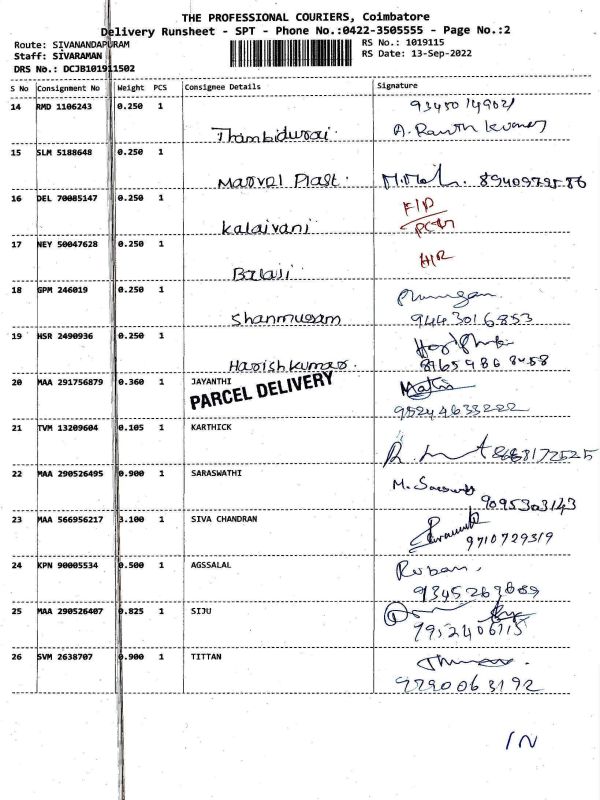 THE PROFESSIONAL COURIERS, Coimbatore
Delivery Runsheet - SPT - Phone No.:0422-3505555 - Page No.:2
Route: SIVANANDAPURAM RS No.: 1019115
Staff: SIVARAMAN RS Date: 13-Sep-2022
DRS No.: DCJB101911502
S No Consignment No Weight PCS Consignee Details Signature
14 RMD 1106243 0.250 1 93450149021
Thambidurai. A. Ranth Kumar
15 SLM 5188648 0.250 1
Marval Plast.
16 DEL 70085147 0.250 1
Kalaivani
17 NEY 50047628 0.250 1
Balaji
18 GPM 246019 0.250 1
Shanmugam 9443016853
19 HSR 2490936 0.250 1
Harishkumar.
20 MAA 291756879 0.360 1 JAYANTHI
PARCEL DELIVERY
21 TVM 13209604 0.105 1 KARTHICK
22 MAA 290526495 0.900 1 SARASWATHI
9095303143
23 MAA 566956217 3.100 1 SIVA CHANDRAN
9710729319
24 KPN 90005534 0.500 1 AGSSALAL Ruban.
25 MAA 290526407 0.825 1 SIJU
26 SVM 2638707 0.900 1 TITTAN
9790063192
IN